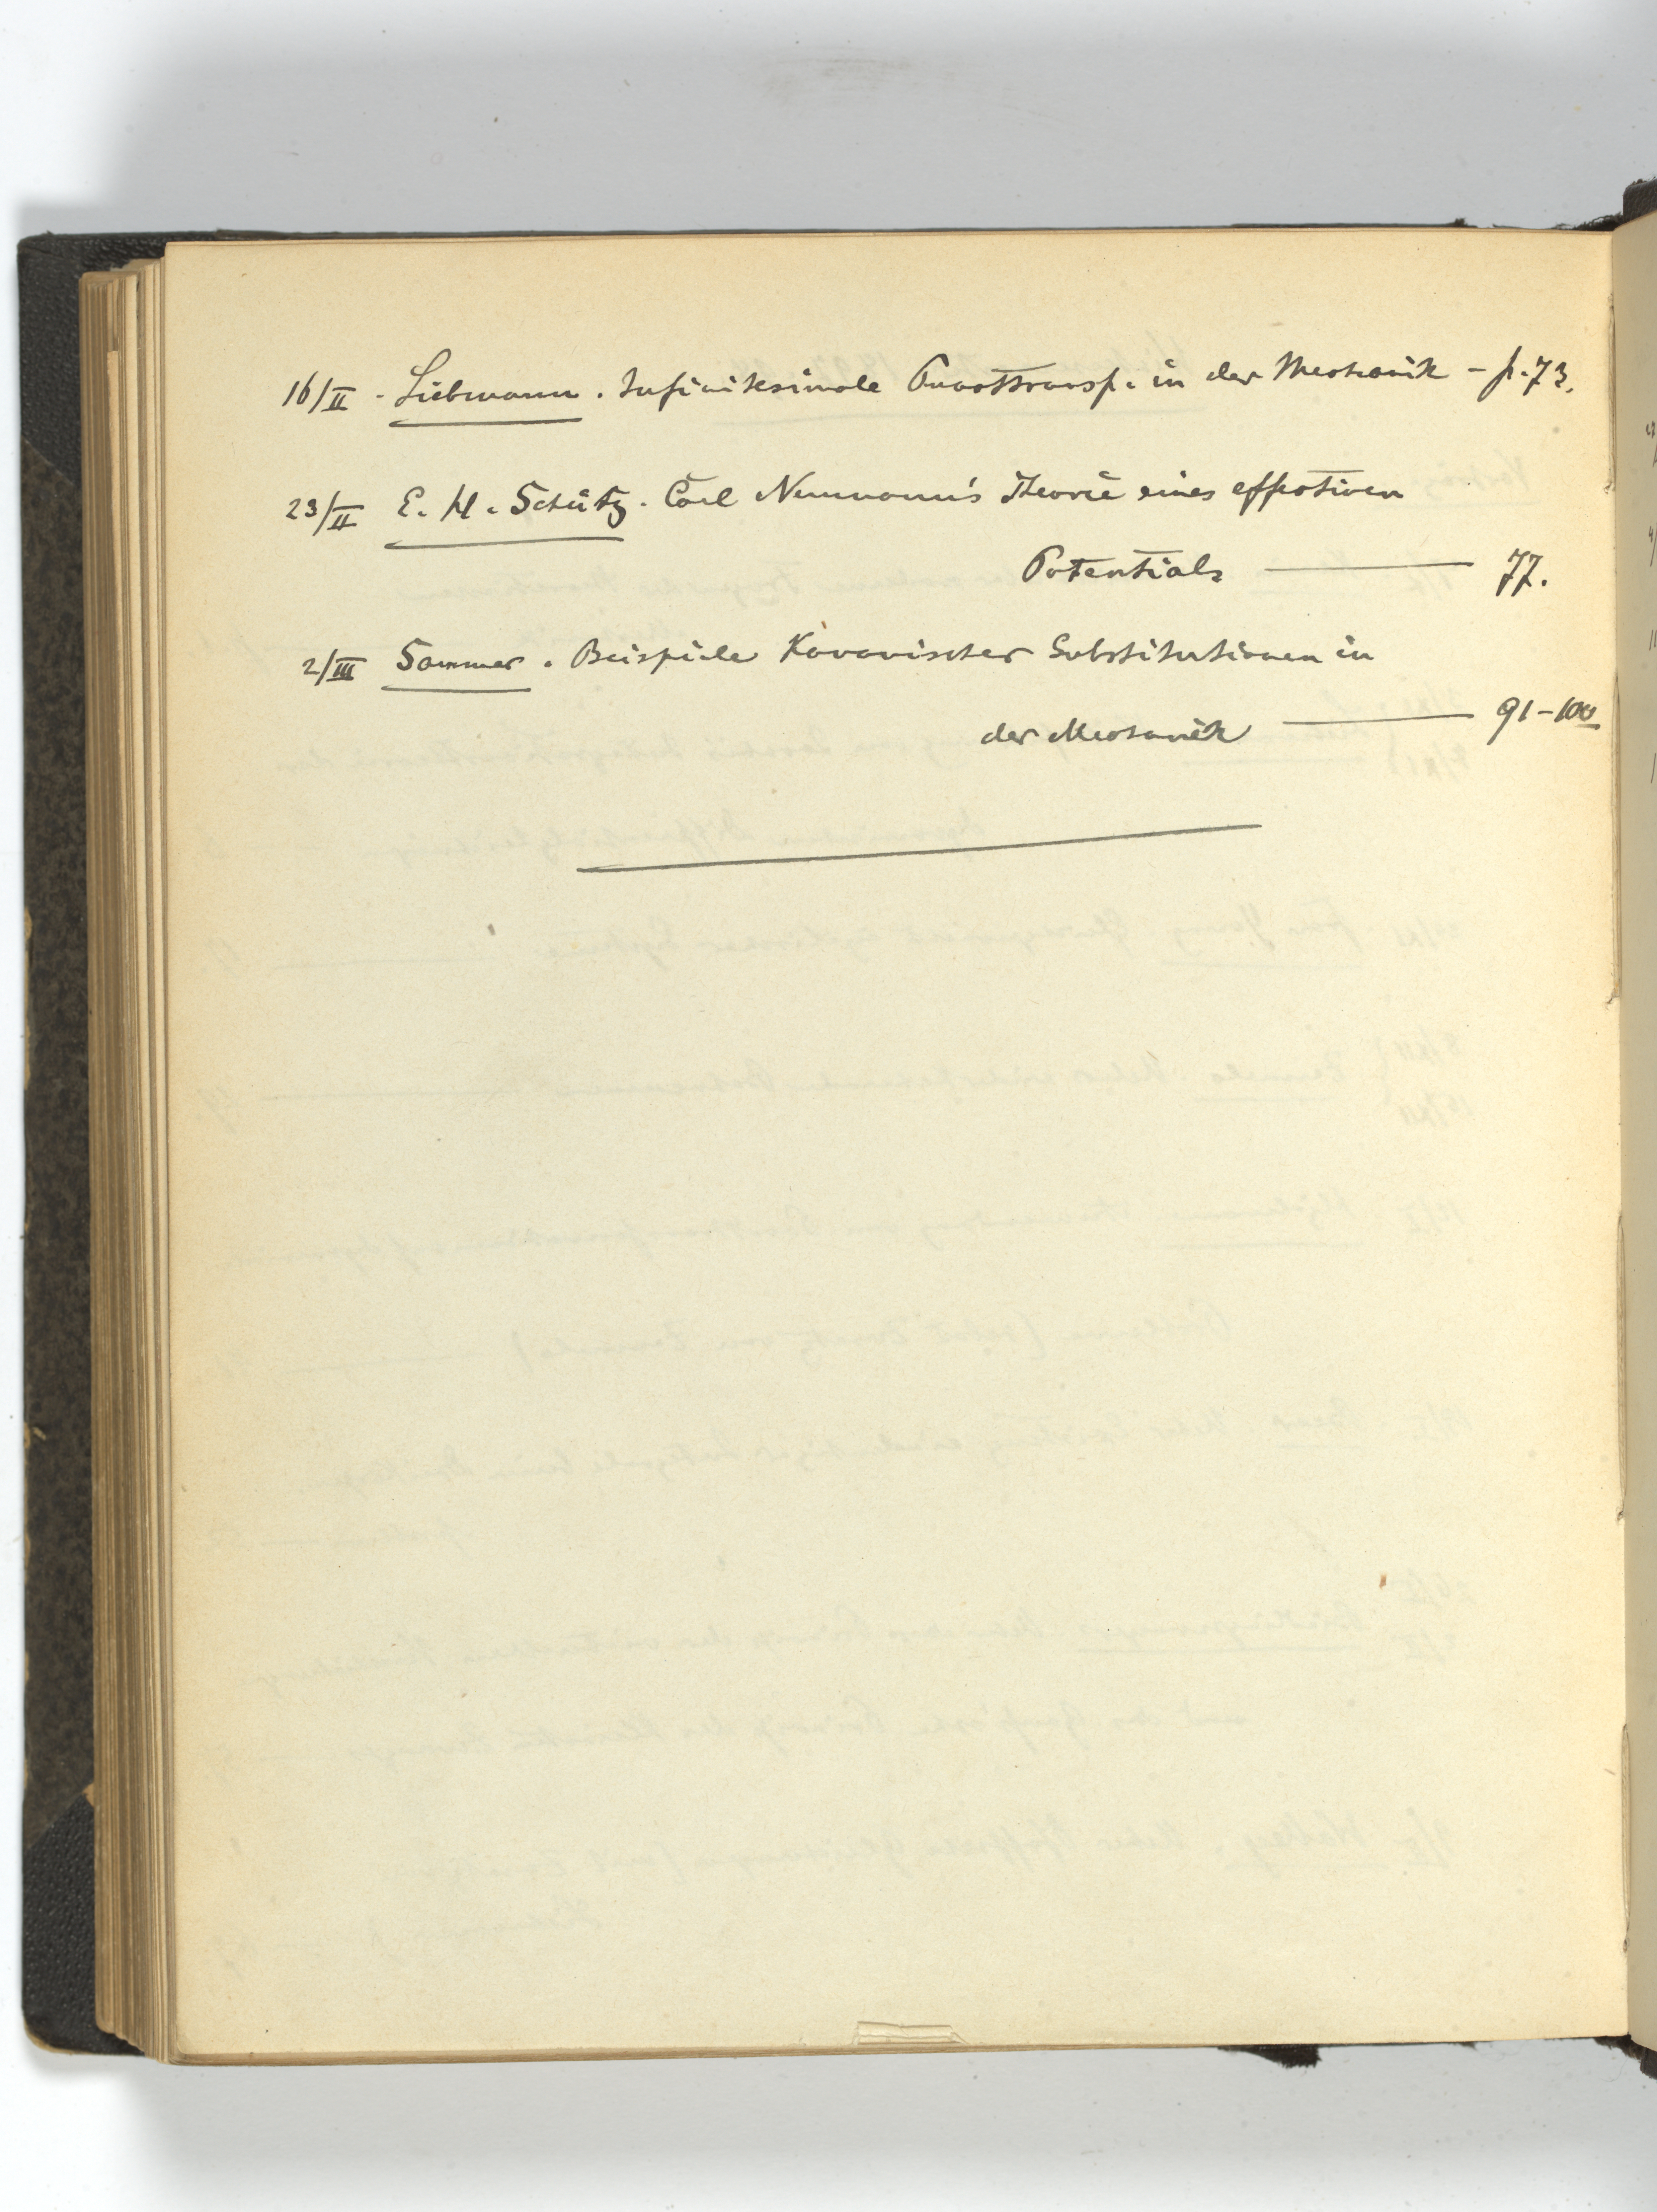 16/II - Liebmann. Infinitesimale Punkttransf. in der Mechanik - p. 73.
23/II E. H. Schütz. Carl Neumann's Theorie eines effektiven
Potentials — 77.
2/III Sommer. Beispiele Kanonischer Substitutionen in
der Mechanik — 91-100